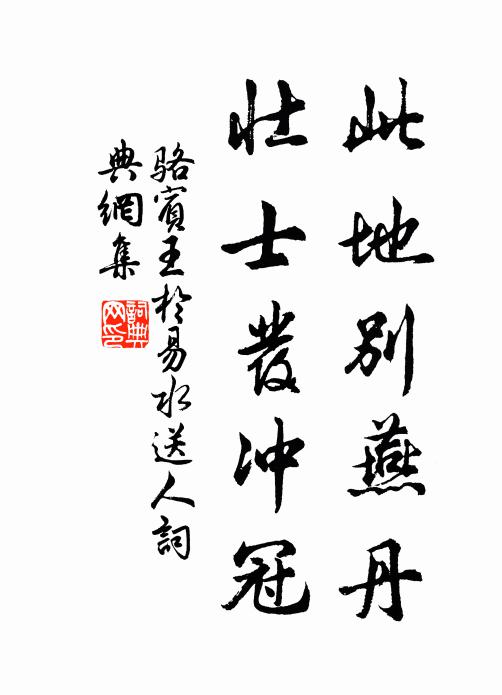 此地別燕丹
壯士發冲冠
駱賓王於易水送人詞
典網集
詞典
网印